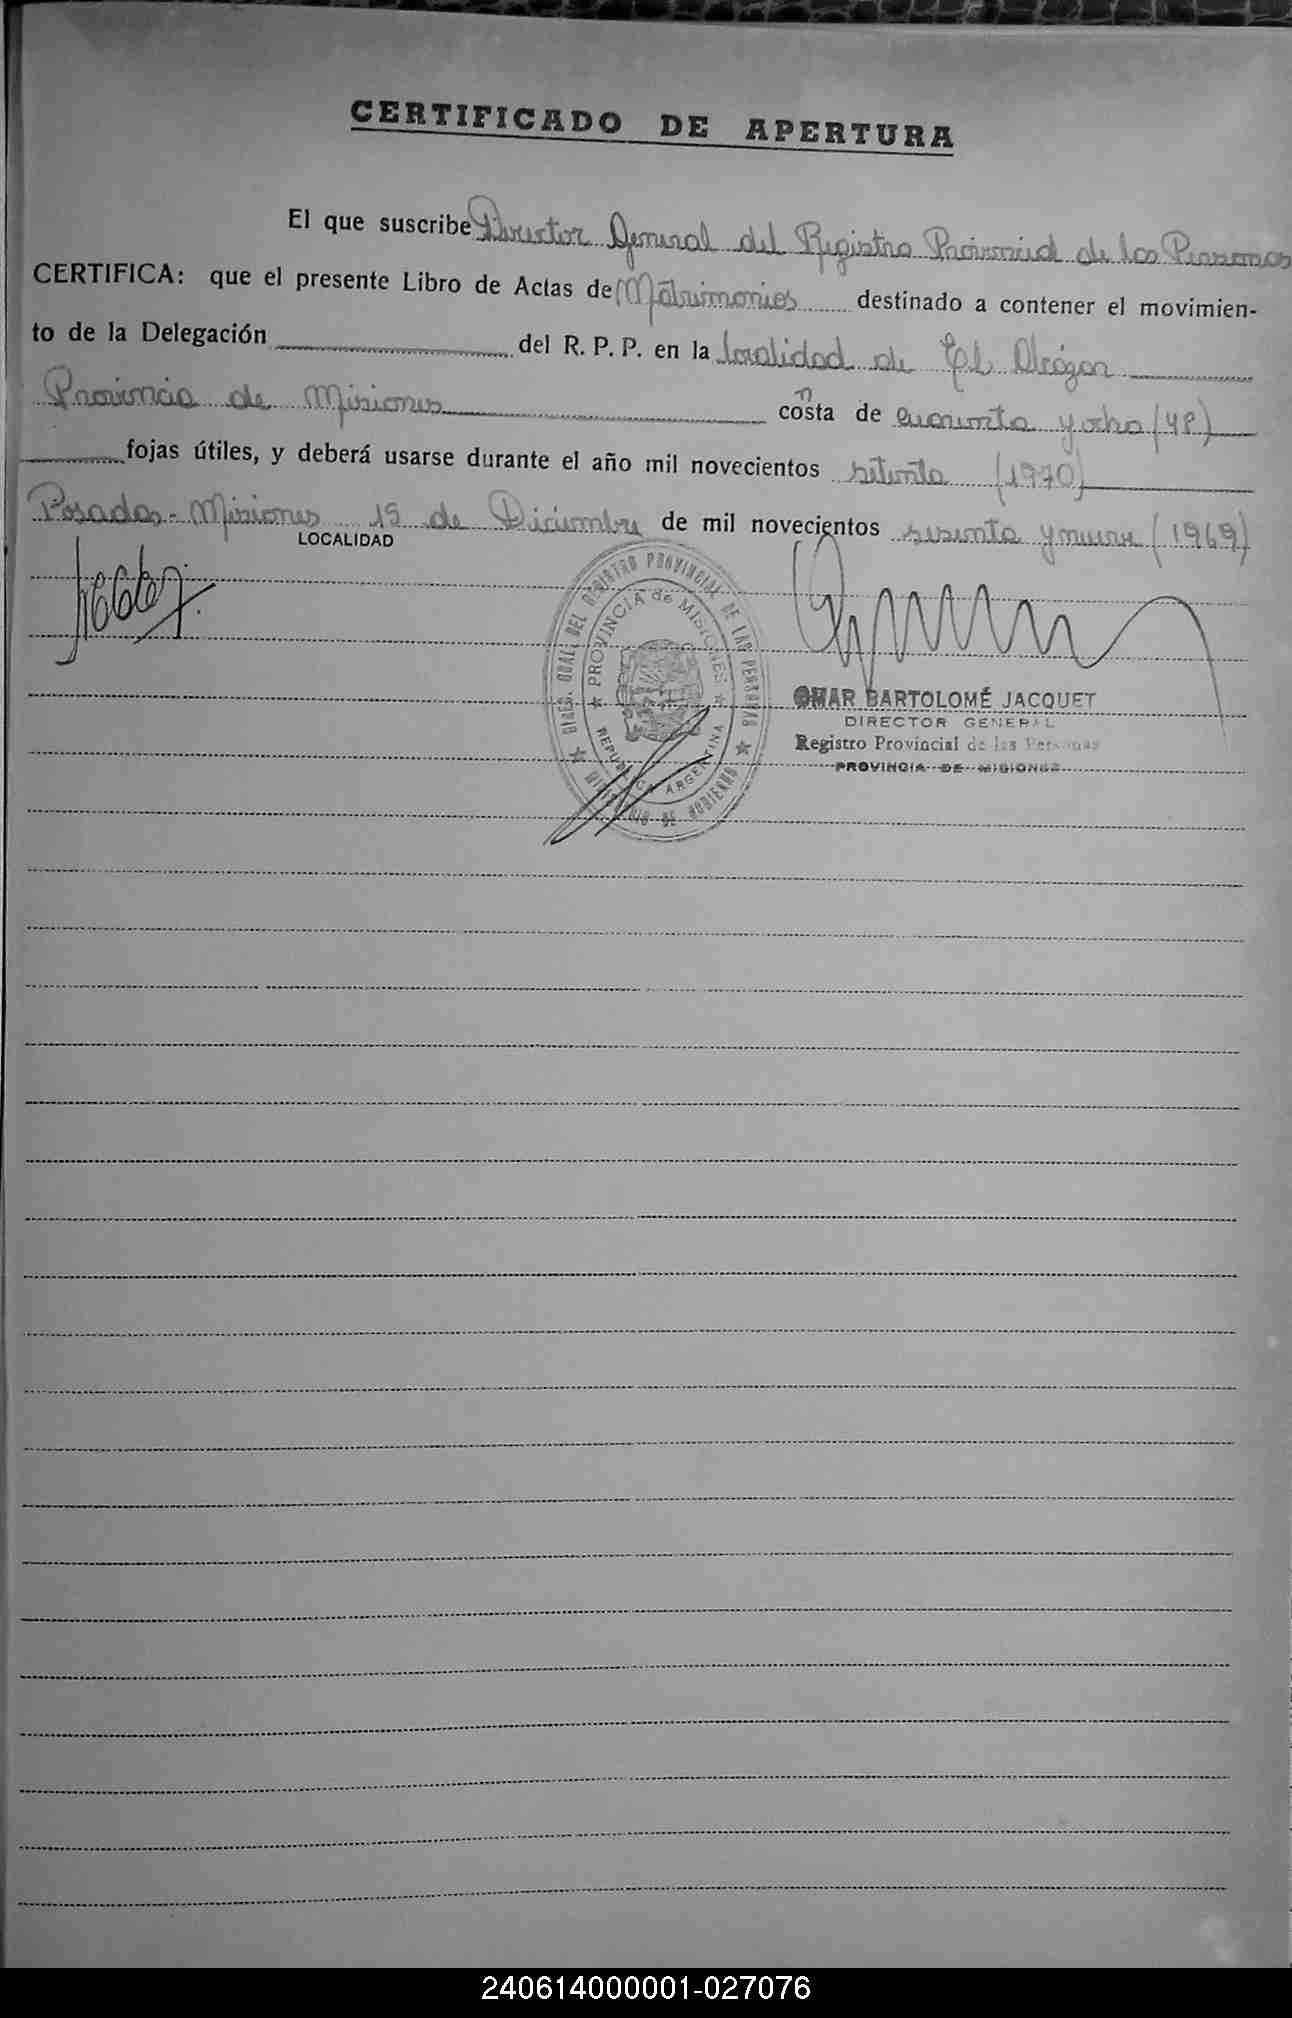 CERTIFICADO DE APERTURA
El que suscribe Director General del Registro Provincial de las Personas
CERTIFICA: que el presente Libro de Actas de Matrimonios destinado a contener el movimien-
to de la Delegación del R. P. P. en la localidad de El Alcázar
Provincia de Misiones consta de cuarenta y ocho (48)
fojas útiles, y deberá usarse durante el año mil novecientos setenta (1970)
Posadas - Misiones 15 de Diciembre de mil novecientos sesenta y nueve (1969)
LOCALIDAD
DIREC. GRAL. DEL REGISTRO PROVINCIAL DE LAS PERSONAS
MINISTERIO DE GOBIERNO
PROVINCIA de MISIONES
REPUBLICA ARGENTINA
OMAR BARTOLOMÉ JACQUET
DIRECTOR GENERAL
Registro Provincial de las Personas
PROVINCIA DE MISIONES
240614000001-027076